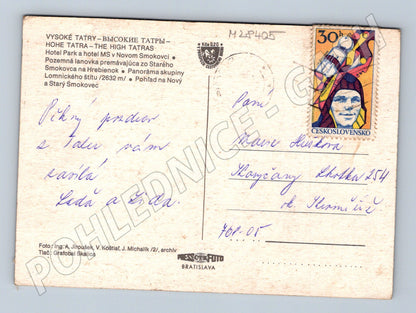 VYSOKÉ TATRY - ВЫСОКИЕ ТАТРЫ -
HOHE TATRA - THE HIGH TATRAS
Hotel Park a hotel MS v Novom Smokovci •
Pozemná lanovka premávajúca zo Starého
Smokovca na Hrebienok • Panoráma skupiny
Lomnického štítu /2632 m/ • Pohľad na Nový
a Starý Smokovec
Kčs 0,20
M28405
30h
ČESKOSLOVENSKO
Pěkný pozdrav
z Tater vám
zasílá
Láďa a Lída
Paní
Marie
Lhotka 254
ok. Kroměříž
768-05
Foto: Ing. A. Jiroušek, V. Košťial, J. Michalík /2/, archív
Tlač: Grafobal Skalica
PRESSFOTO
BRATISLAVA
POHLEDNICE -